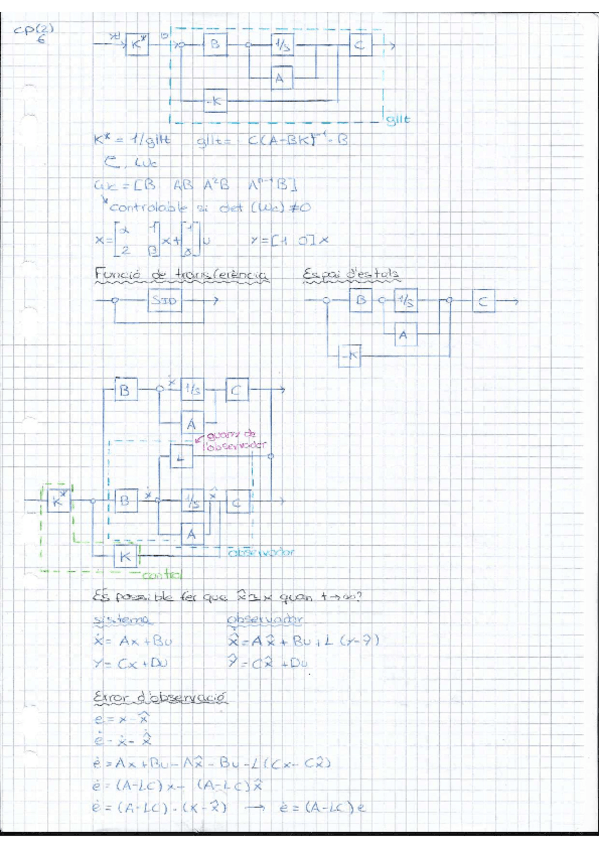 cp(2)
6
K* B 1/s C
A
-K
gllt
K* = 1/gllt gllt = C(A-BK)⁻¹ - B
Wc = [B AB A²B Aⁿ⁻¹B]
* controlable si det (Wc) ≠ 0
y = [1 0] x
Funció de transferència Espai d'estats
SID
B 1/s C
A
-K
B ẋ 1/s C
A
guany de
l'observador
L
K* B ẋ 1/s x̂ C
A
K
observador
control
És possible fer que x̂ ≃ x quan t→∞?
sistema observador
ẋ = Ax + Bu x̂ = Ax̂ + Bu + L (y-ŷ)
y = Cx + Du ŷ = Cx̂ + Du
Error d'observació
e = x - x̂
ė = ẋ - x̂
ė = Ax + Bu - Ax̂ - Bu - L(Cx - Cx̂)
ė = (A-LC)x - (A-LC)x̂
ė = (A-LC) · (x-x̂) → ė = (A-LC) e